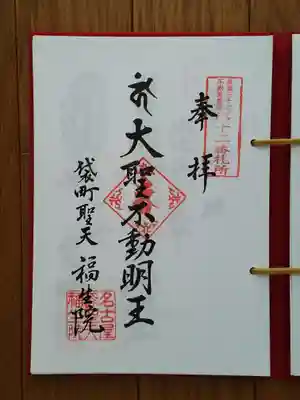 奉拝
十二番札所
大聖不動明王
袋町聖天 福生院
名古屋